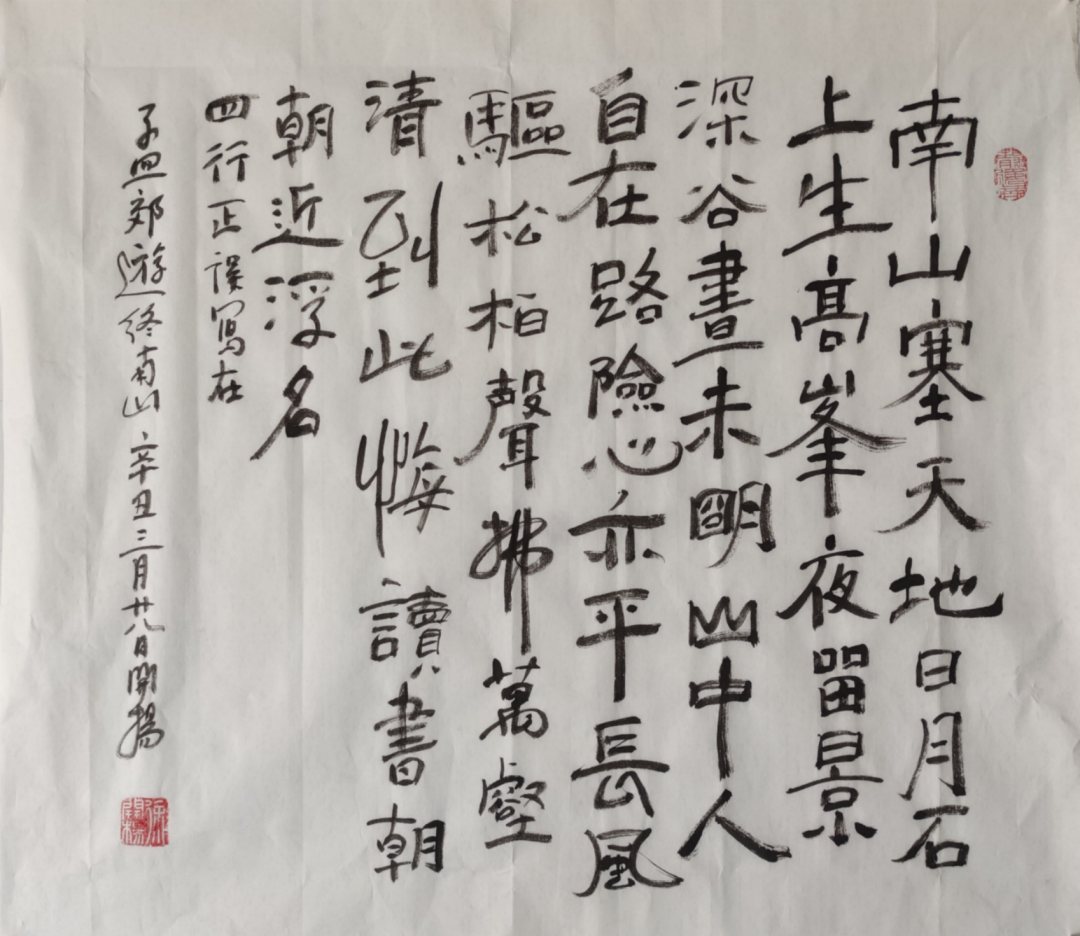 南山塞天地日月石
上生髙峯夜留景
深谷晝未明山中人
自在路險心亦平長風
驅松柏聲拂萬壑
清到此悔讀書朝
朝近浮名
四行正誤寫在
孟郊遊終南山辛丑三月廿八日開揚